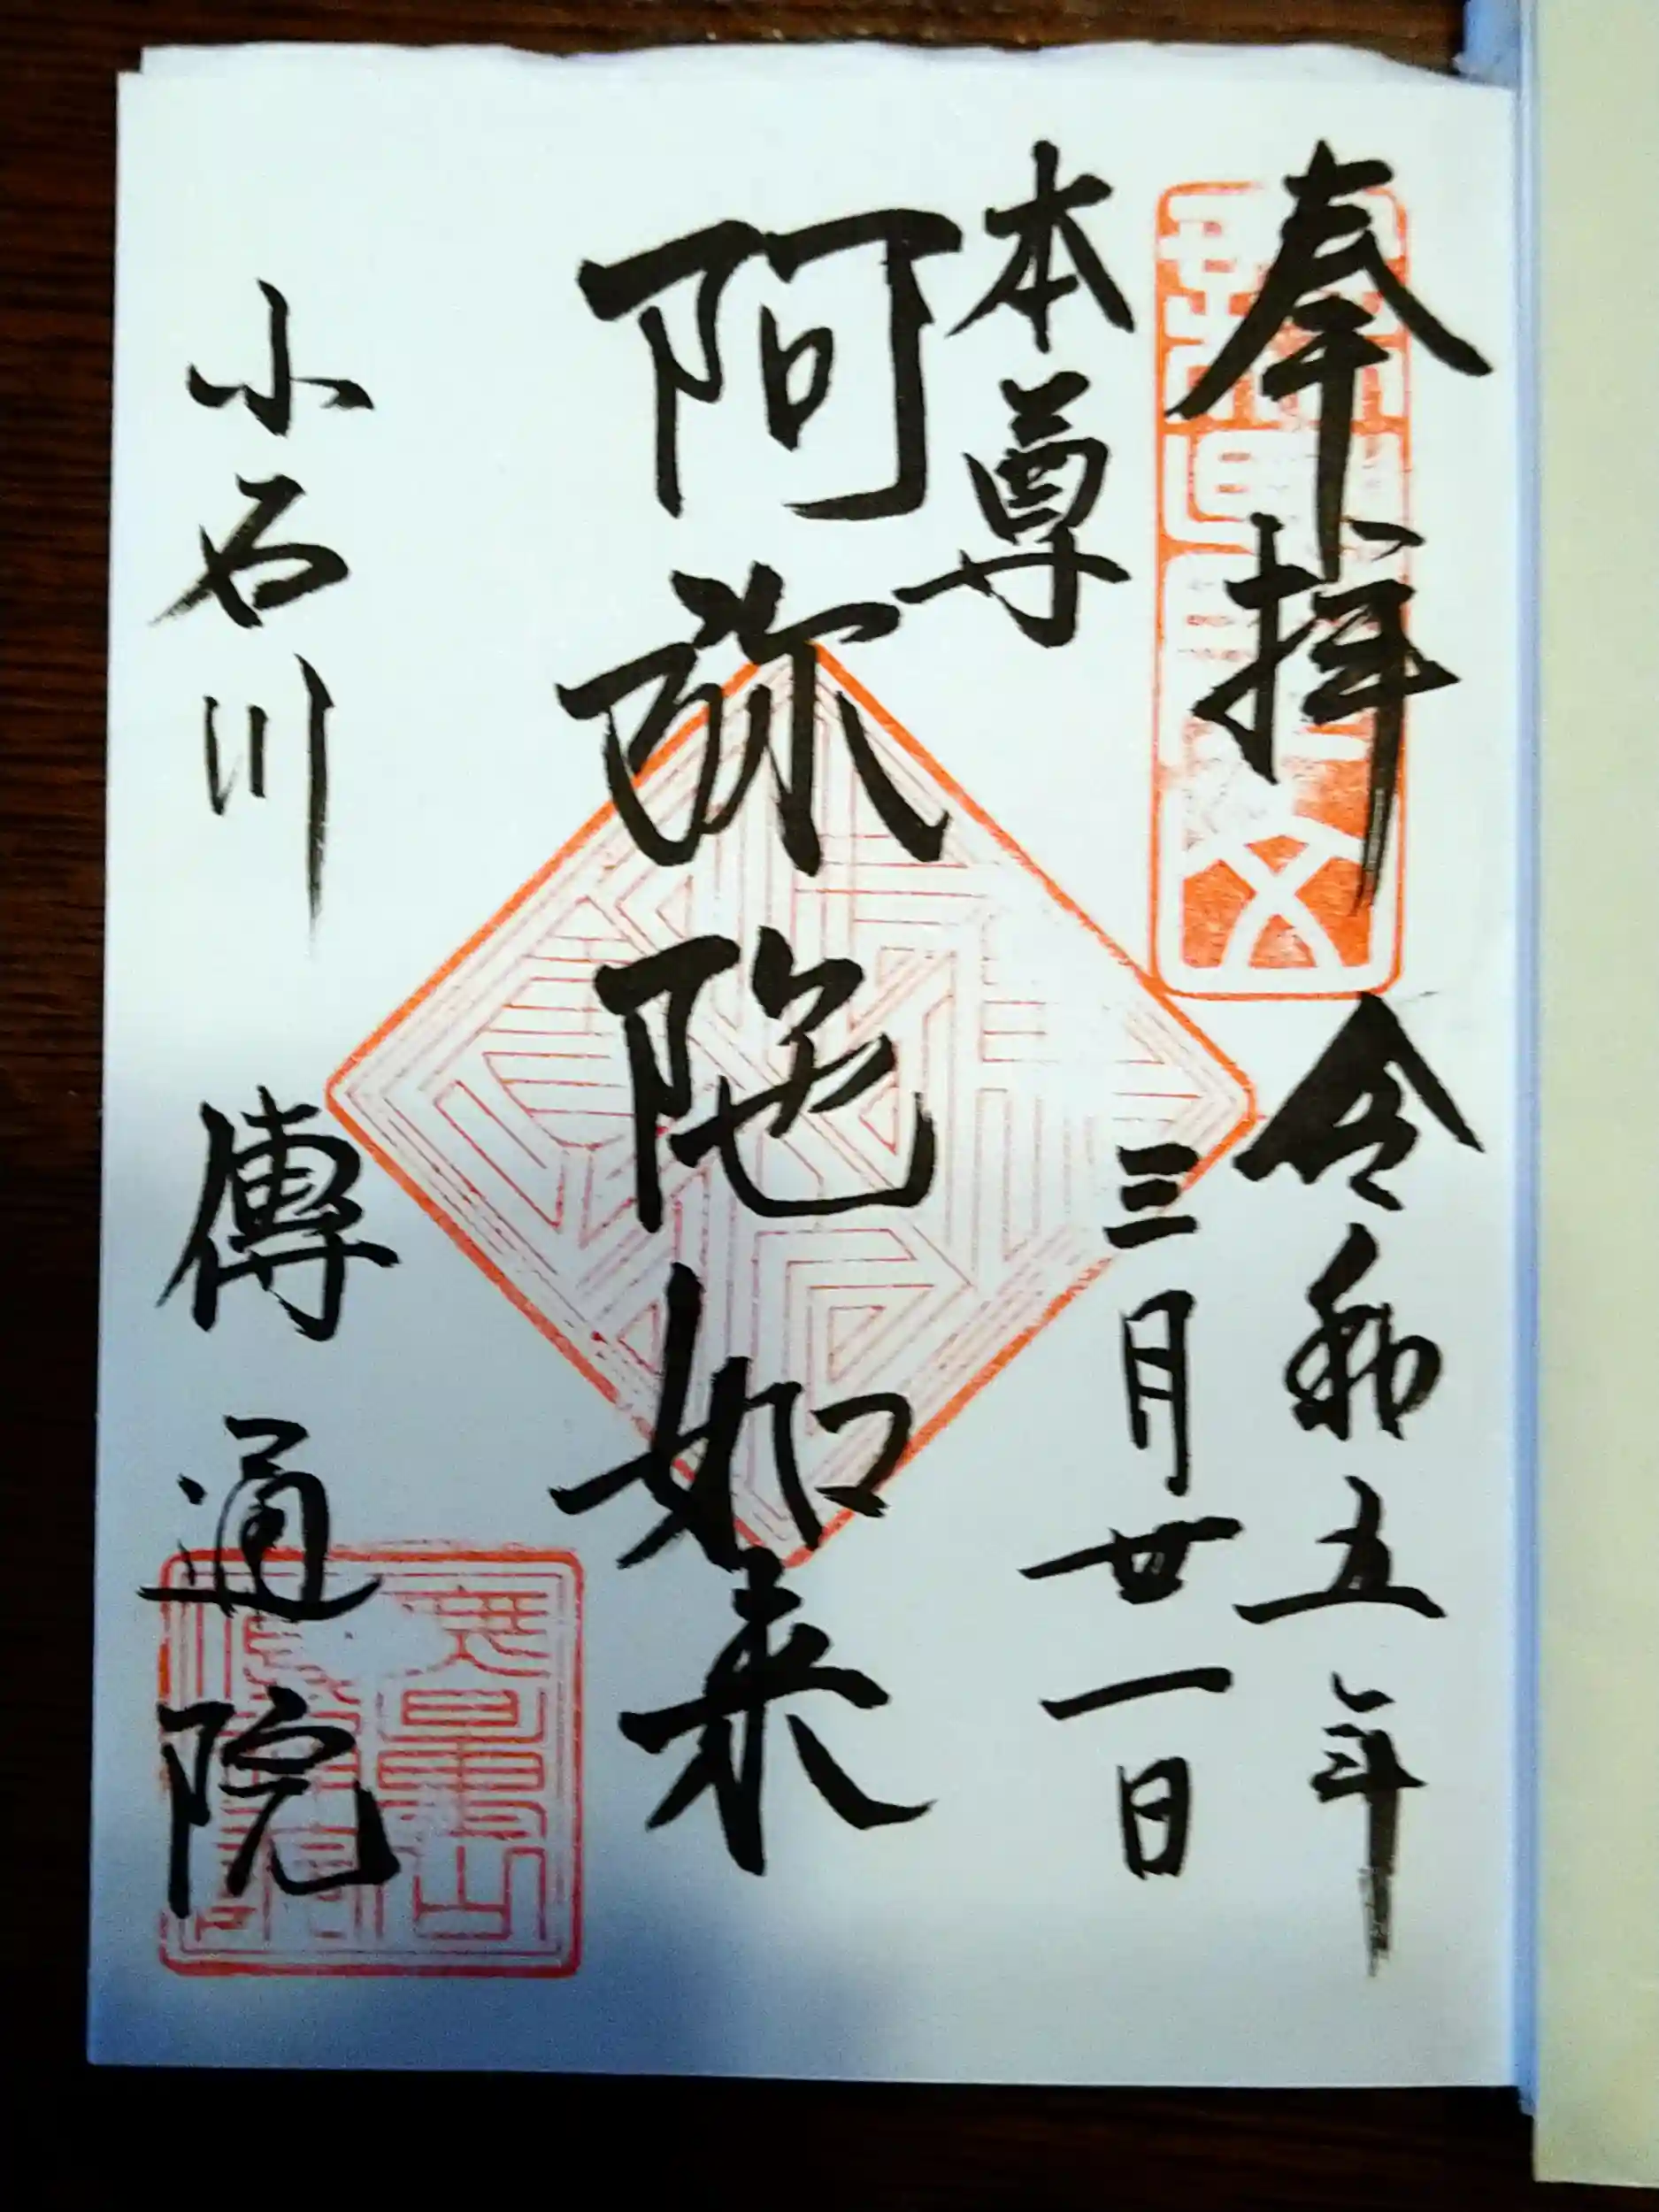 奉拝 令和五年
三月廿一日
本尊
阿弥陀如来
小石川 傳通院
無量山